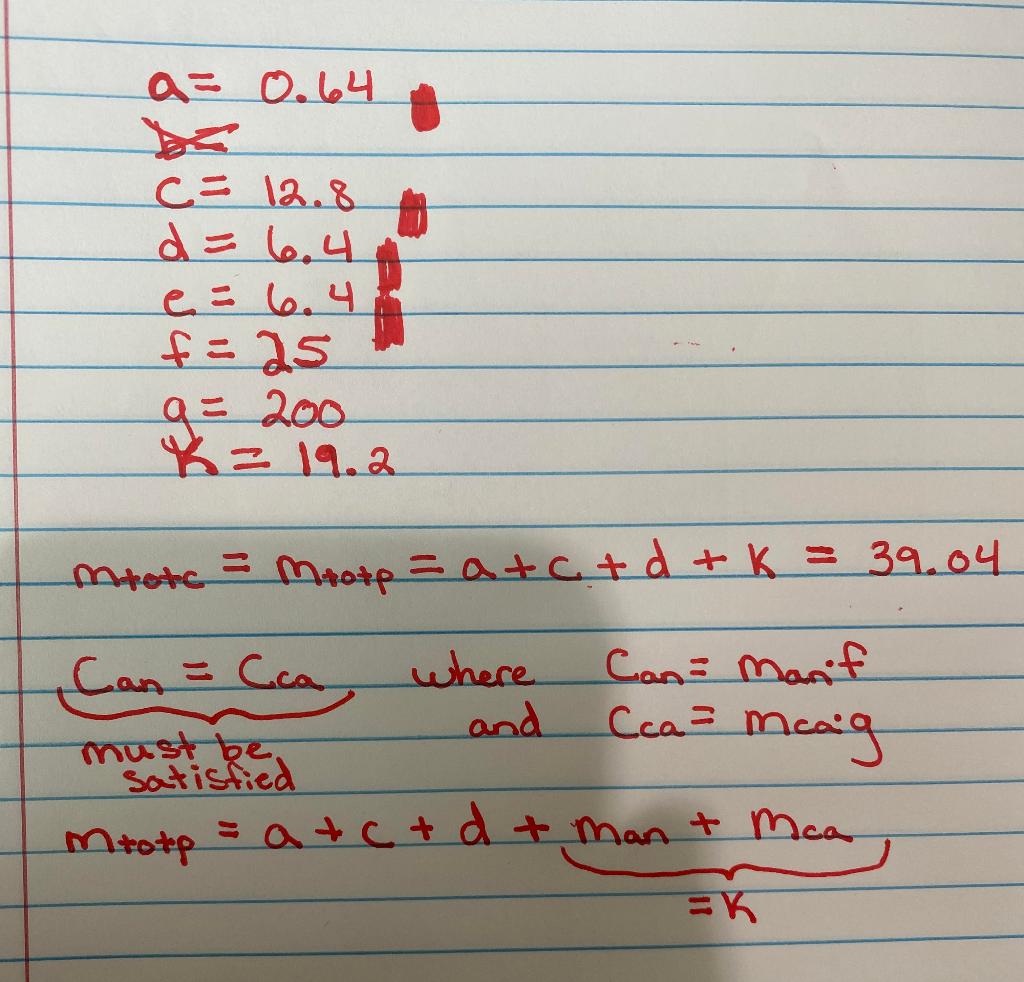 a = 0.64
c = 12.8
d = 6.4
e = 6.4
f = 25
g = 200
K = 19.2
mtotc = mtotp = a + c + d + K = 39.04
Can = Cca where Can = man·f
must be and Cca = mca·g
satisfied
mtotp = a + c + d + man + mca
= K